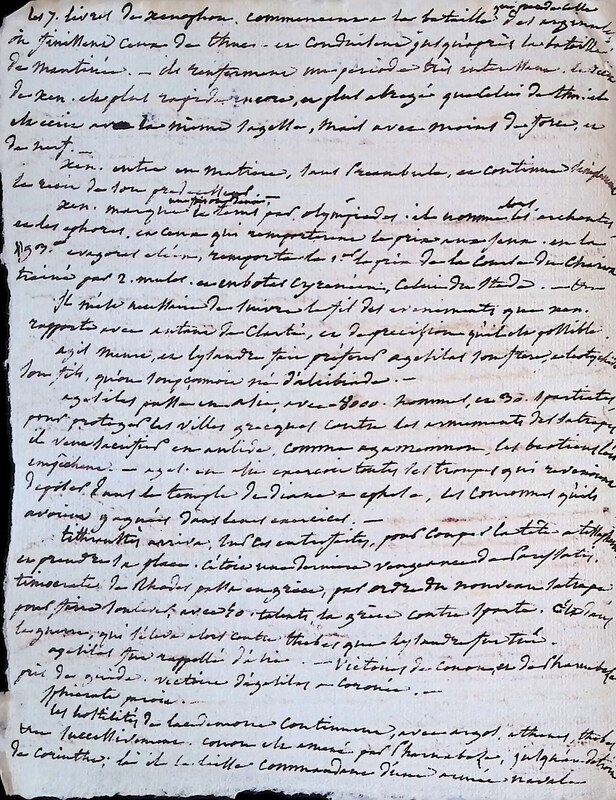 les 7. livres de xenophon. commencent a la bataille qui precede celle des arginuses
où finissent ceux de thuc. et conduisent jusqu'après la bataille
de mantinée. — ils renferment une période très interessante. le récit
de xen. est plus rapide encore, et plus abrégé que celui de thuc. il
est écrit avec la même sagesse, mais avec moins de force, et
de nerf. —
xen. entre en matiere, sans préambule, et continue
le récit de son prédécesseur.
xen. marque le tems par olympiades. il nomme les archontes
et les ephores, et ceux qui remporterent le prix aux jeux. en la
93.e evagoras remporta le prix de la course du char
trainé par 2. mules. et eubotas cyreneen, celui du stade. —
Il m'est inutile de suivre le fil des evenemens que xen.
rapporte avec autant de clarté, et de precision qu'il est possible
agis meurt, et lysandre fait préférer agesilas son frère, a leotychide
son fils, qu'on soupçonnoit né d'alcibiade. —
agesilas passe en asie, avec 8000. hommes, et 30. spartiates
pour proteger les villes grecques contre les armemens des satrapes
il veut sacrifier en aulide, comme agamemnon, les beotiens l'en
empêchent. — agel. en asie exercoit toutes les troupes qui revenoient
déposer dans le temple de diane a ephese, les couronnes qu'ils
avoient gagnées dans leurs exercices. —
tithraustes arriva, sur ces entrefaites, pour couper la tête a tissapherne
et prendre sa place. c'étoit une derniere vengeance de Parysatis.
timocrate de Rhodes passa en grèce, par ordre du nouveau satrape
pour faire soulever, avec 50. talents la grèce contre sparte. C'est dans
la guerre, qui s'éleva alors contre thebes que lysandre fut tué.
agesilas fut rappellé d'asie. — victoires de conon, et de Pharnabaze
près de gnide. victoire d'agesilas a coronée. —
Iphicrate
les hostilités de lacedemone continuent, avec argos, athenes, thebes
successivement. conon est amené par Pharnabaze, jusqu'au
de corinthe. là il le laisse commandant d'une armée navale